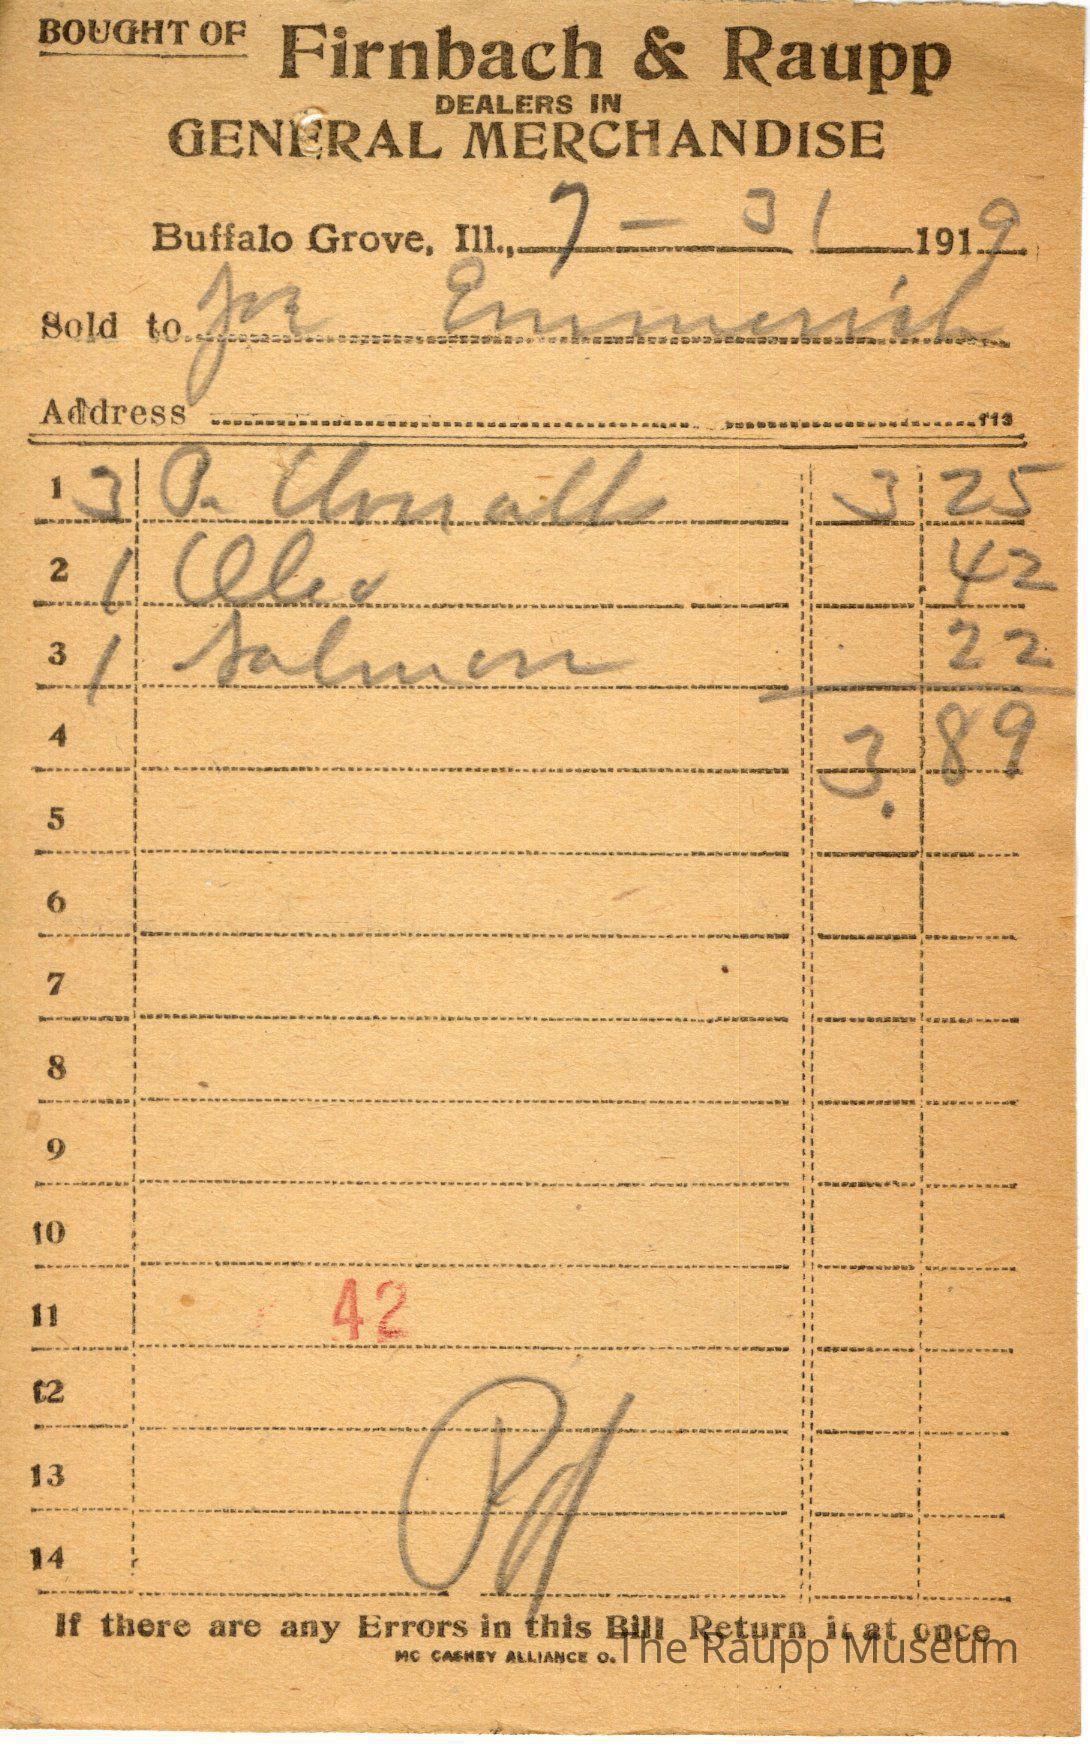 BOUGHT OF Firnbach & Raupp
DEALERS IN
GENERAL MERCHANDISE
Buffalo Grove, Ill., 7 - 31 1919
Sold to Joe Emmerich
Address 113
1 3 P. 3 25
2 1 Oleo 42
3 1 Salmon 22
4 3. 89
5
6
7
8
9
10
11 42
12
13
14
If there are any Errors in this Bill Return it at once
MC CASKEY ALLIANCE O.
The Raupp Museum